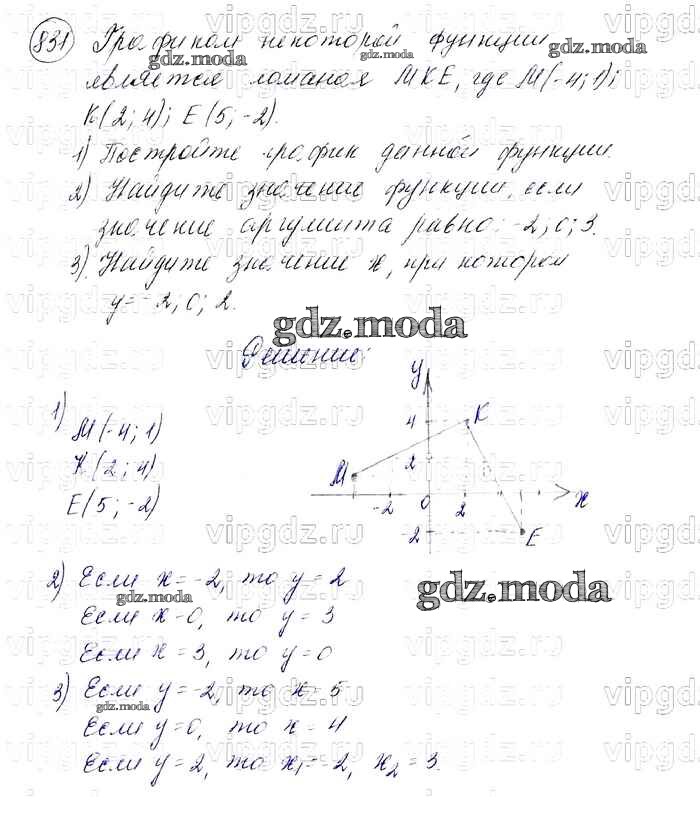 831 Графиком некоторой функции
является ломаная MKE, где M(-4; 1);
K(2; 4); E(5; -2).
1) Постройте график данной функции.
2) Найдите значение функции, если
значение аргумента равно: -2; 0; 3.
3) Найдите значение x, при котором
y = -2; 0; 2.
gdz.moda
Решение:
1)
M(-4; 1)
K(2; 4)
E(5; -2)
y
4
K
2
M
-2 0 2 x
-2 E
2) Если x = -2, то y = 2
gdz.moda
gdz.moda
Если x = 0, то y = 3
Если x = 3, то y = 0
3) Если y = -2, то x = 5
gdz.moda
Если y = 0, то x = 4
Если y = 2, то x₁ = -2, x₂ = 3.
gdz.moda
vipgdz.ru